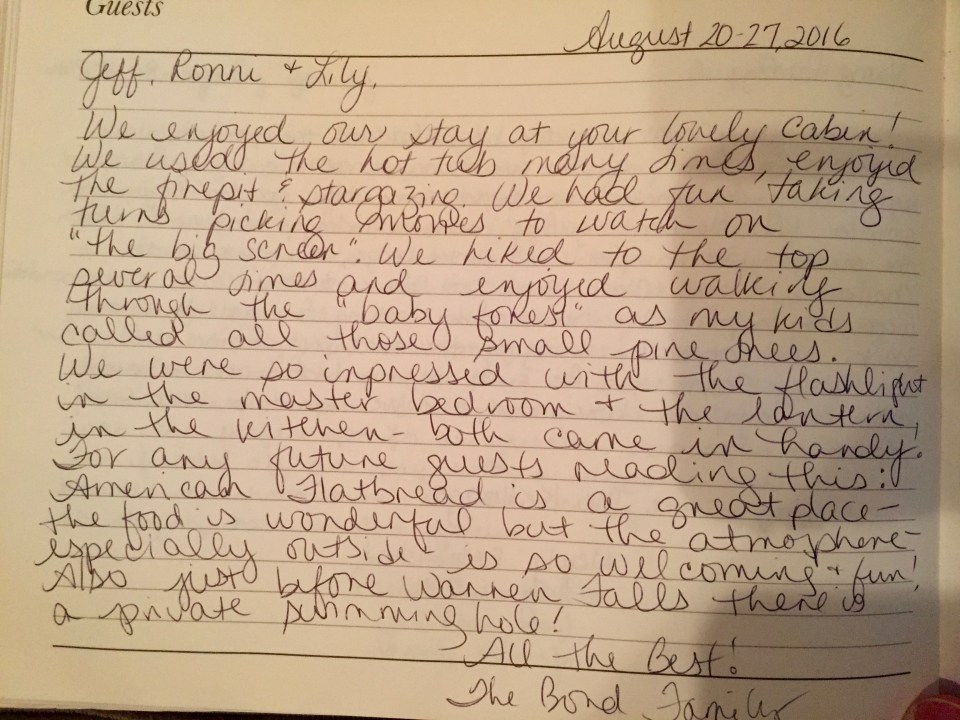 Guests
August 20-27, 2016
Jeff, Ronni + Lily,
We enjoyed our stay at your lovely cabin!
We used the hot tub many times, enjoyed
the firepit & stargazing. We had fun taking
turns picking movies to watch on
"the big screen". We hiked to the top
several times and enjoyed walking
through the "baby forest" as my kids
called all those small pine trees.
We were so inpressed with the flashlight
in the master bedroom + the lantern
in the kitchen - both came in handy.
For any future guests reading this:
American Flatbread is a great place -
the food is wonderful but the atmosphere -
especially outside is so welcoming + fun!
Also just before Warren Falls there is
a private swimming hole!
All the Best!
The Bond Family